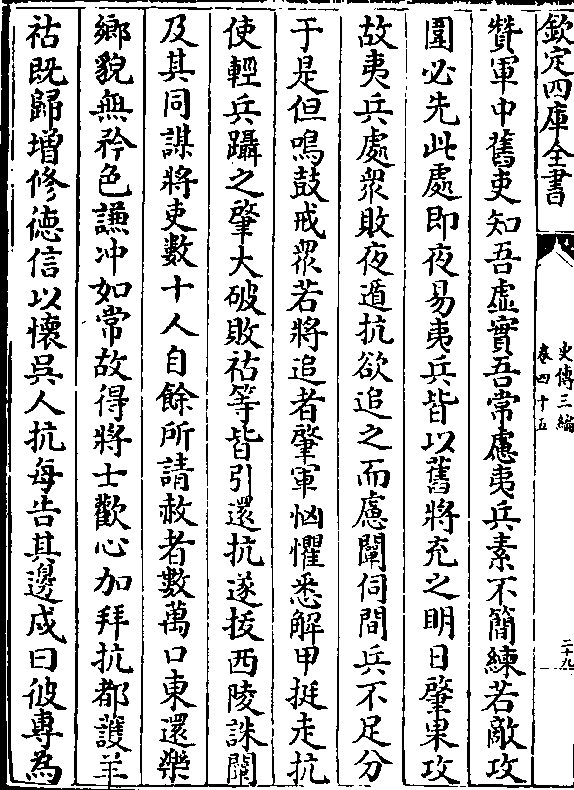 欽定四庫全書
史傳三編
卷四十五
二十九
贊軍中舊吏知吾虛實吾常慮夷兵素不簡練若敵攻
圍必先此處即夜易夷兵皆以舊將充之明日肇果攻
故夷兵處衆敗夜遁抗欲追之而慮闡伺間兵不足分
于是但鳴鼓戒衆若將追者肇軍恟懼悉解甲挺走抗
使輕兵躡之肇大破敗祜等皆引還抗遂拔西陵誅闡
及其同謀將吏數十人自餘所請赦者數萬口東還樂
鄉貌無矜色謙冲如常故得將士歡心加拜抗都護羊
祜既歸增修德信以懷吳人抗每告其邊戍曰彼專為